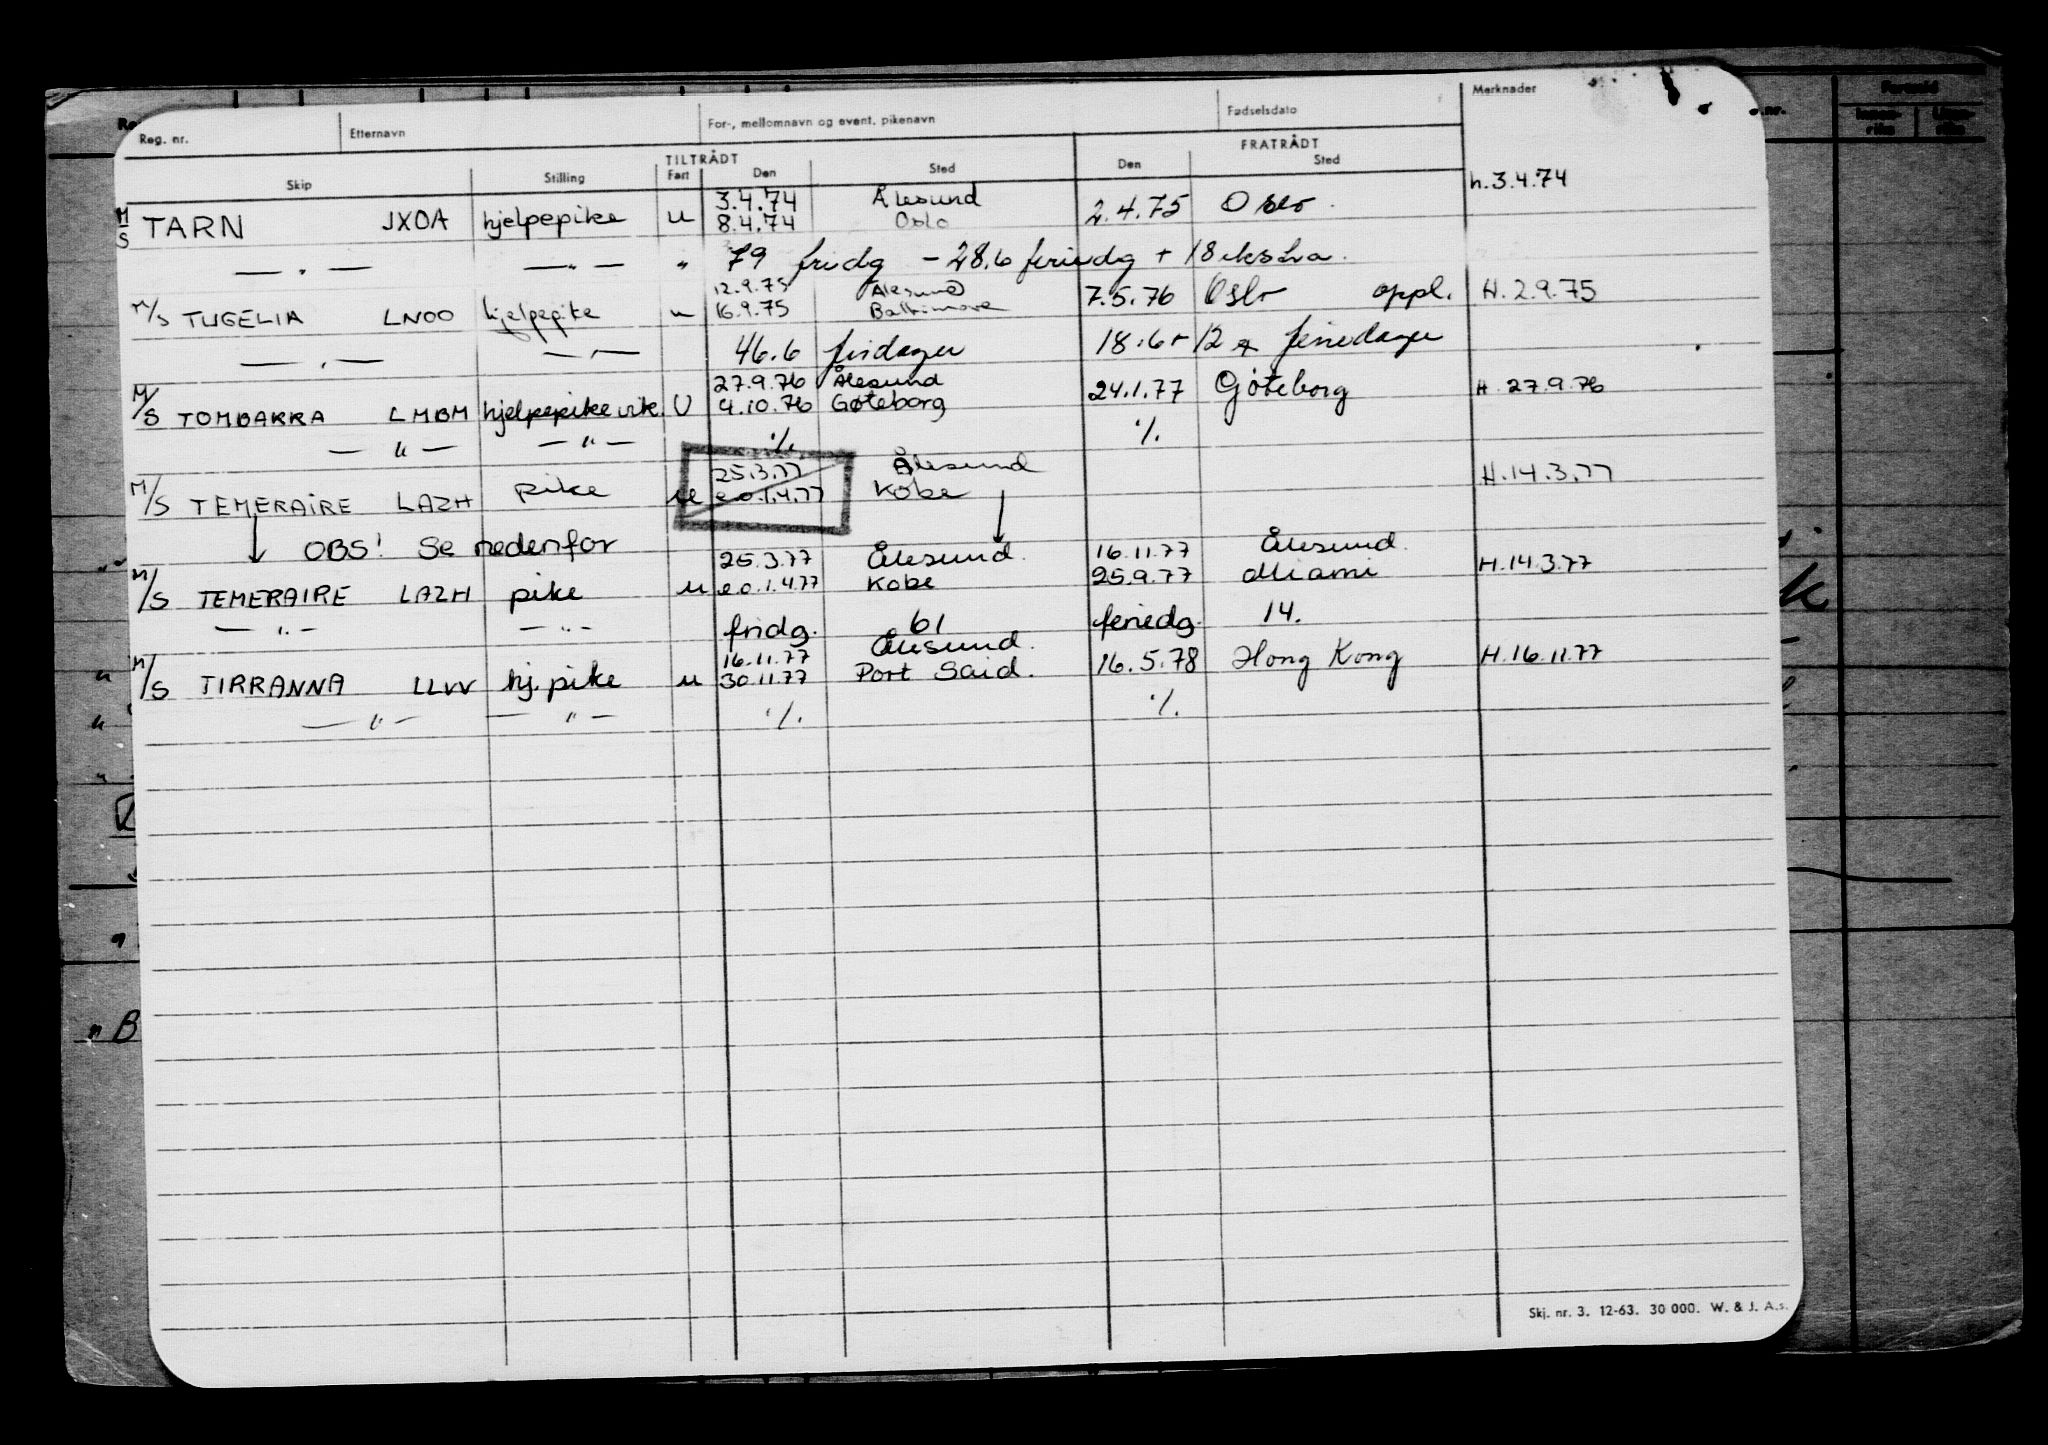 Reg. nr. Etternavn For-, mellomnavn og event. pikenavn Fødselsdato Merknader
TILTRÅDT FRATRÅDT
Skip Stilling Fart Den Sted Den Sted
3.4.74 Ålesund h.3.4.74
M/S TARN JXOA hjelpepike u 8.4.74 Oslo 2.4.75 Oslo.
— " — — " — " 79 fridg – 28.6 feriedg + 18 ekstra.
12.9.75 Ålesund
M/S TUGELIA LNOO hjelpepike u 16.9.75 Baltimore 7.5.76 Oslo oppl. H.2.9.75
— " — — " — 46.6 fridager 18.6 + 12 feriedager
27.9.76 Ålesund
M/S TOMBARRA LMBM hjelpepike vik. U 4.10.76 Gøteborg 24.1.77 Göteborg H. 27.9.76
— " — — " — ·/. ·/.
25.3.77 Ålesund
M/S TEMERAIRE LAZH pike u e.o.1.4.77 Kobe H.14.3.77
OBS! Se nedenfor
25.3.77 Ålesund. 16.11.77 Ålesund.
M/S TEMERAIRE LAZH pike u e.o.1.4.77 Kobe 25.9.77 Miami H.14.3.77
— " — — " — fridg. 61 feriedg. 14.
16.11.77 Ålesund.
M/S TIRRANNA LLVV hj.pike u 30.11.77 Port Said. 16.5.78 Hong Kong H.16.11.77
— " — — " — ·/. ·/.
Skj. nr. 3. 12-63. 30 000. W. & J. A.s.